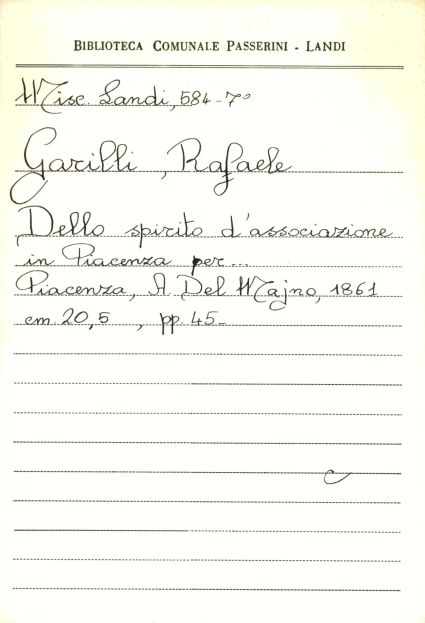 BIBLIOTECA COMUNALE PASSERINI - LANDI
Misc. Landi, 584-7°
Garilli, Rafaele
Dello spirito d'associazione
in Piacenza per...
Piacenza, A. Del Majno, 1861
cm. 20,5 , pp. 45-
C